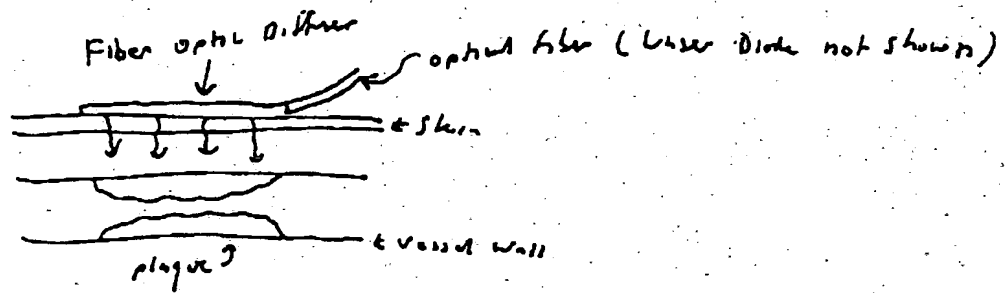 Fiber optic Diffuser
optical fiber (Laser Diode not shown)
skin
vessel wall
plaque